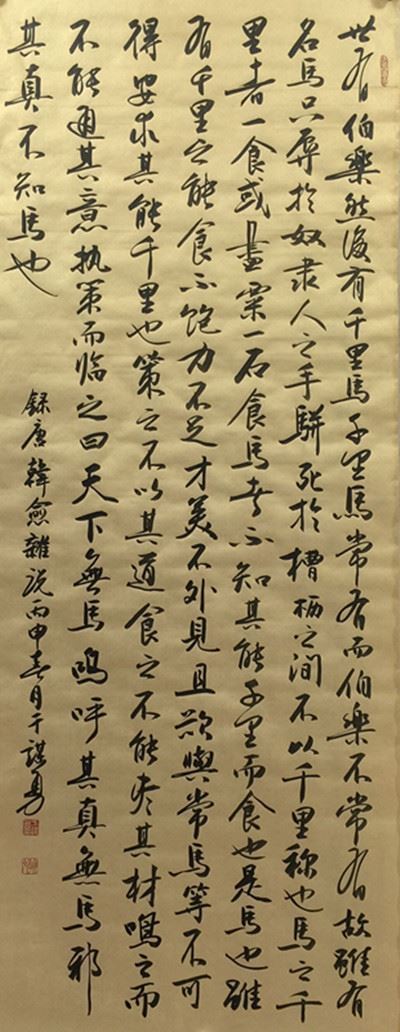 世有伯樂然後有千里馬千里馬常有而伯樂不常有故雖有
名馬只辱於奴隸人之手駢死於槽枥之間不以千里稱也馬之千
里者一食或盡粟一石食馬者不知其能千里而食也是馬也雖
有千里之能食不飽力不足才美不外見且欲與常馬等不可
得安求其能千里也策之不以其道食之不能盡其材鳴之而
不能通其意执策而臨之曰天下無馬嗚呼其真無馬邪
其真不知馬也
録唐韓愈雜説丙申春月于謀勇